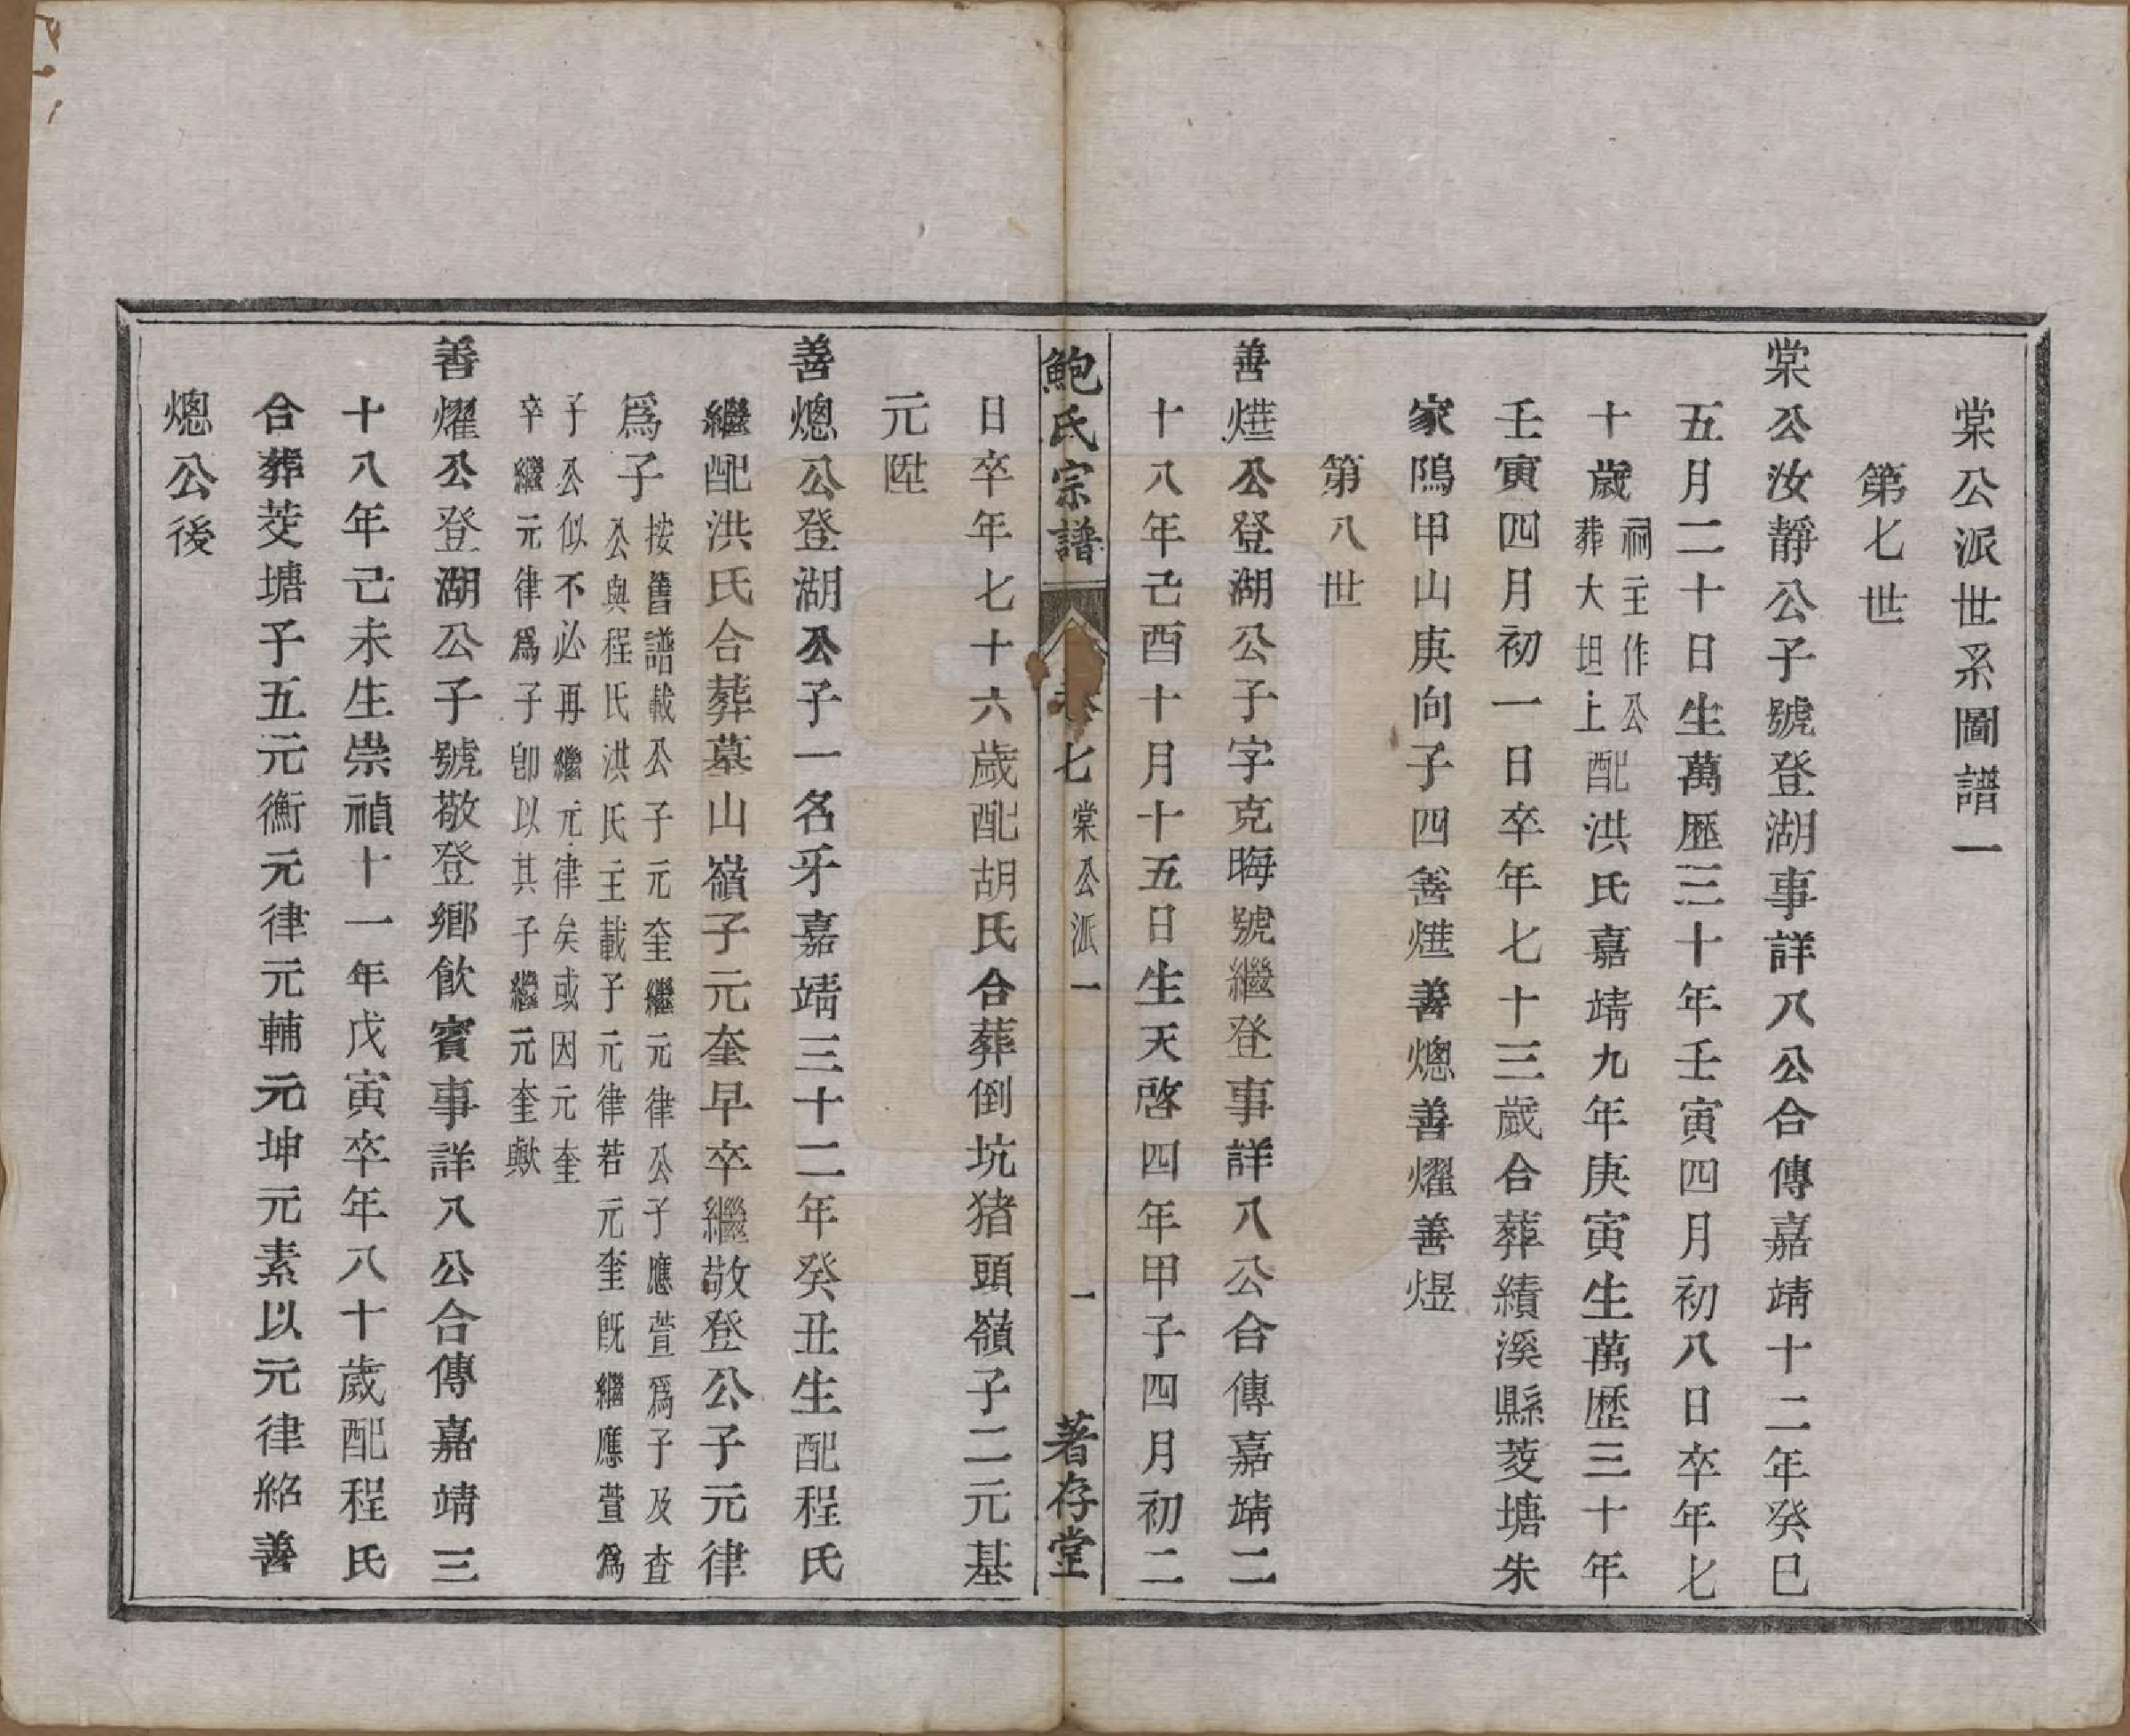 棠公派世系圖譜一
第七世
棠公汝靜公子號登湖事詳八公合傳嘉靖十二年癸巳
五月二十日生萬歷三十年壬寅四月初八日卒年七
十歲祠主作公葬大坦上配洪氏嘉靖九年庚寅生萬歷三十年
壬寅四月初一日卒年七十三歲合葬績溪縣茭塘朱
家隝甲山庚向子四善㷸善熜善燿善煜
第八世
善㷸公登湖公子字克晦號繼登事詳八公合傳嘉靖二
十八年己酉十月十五日生天啓四年甲子四月初二
鮑氏宗譜 卷七 棠公派一 一 著存堂
日卒年七十六歲配胡氏合葬倒坑猪頭嶺子二元基
元陞
善熜公登湖公子一名牙嘉靖三十二年癸丑生配程氏
繼配洪氏合葬墓山嶺子元奎早卒繼敬登公子元律
爲子按舊譜載公子元奎繼元律公子應萱爲子及查
公與程氏洪氏主載子元律若元奎旣繼應萱爲
子公似不必再繼元律矣或因元奎
卒繼元律爲子卽以其子繼元奎歟
善燿公登湖公子號敬登鄉飮賓事詳八公合傳嘉靖三
十八年己未生崇禎十一年戊寅卒年八十歲配程氏
合葬茭塘子五元衡元律元輔元坤元素以元律紹善
熜公後